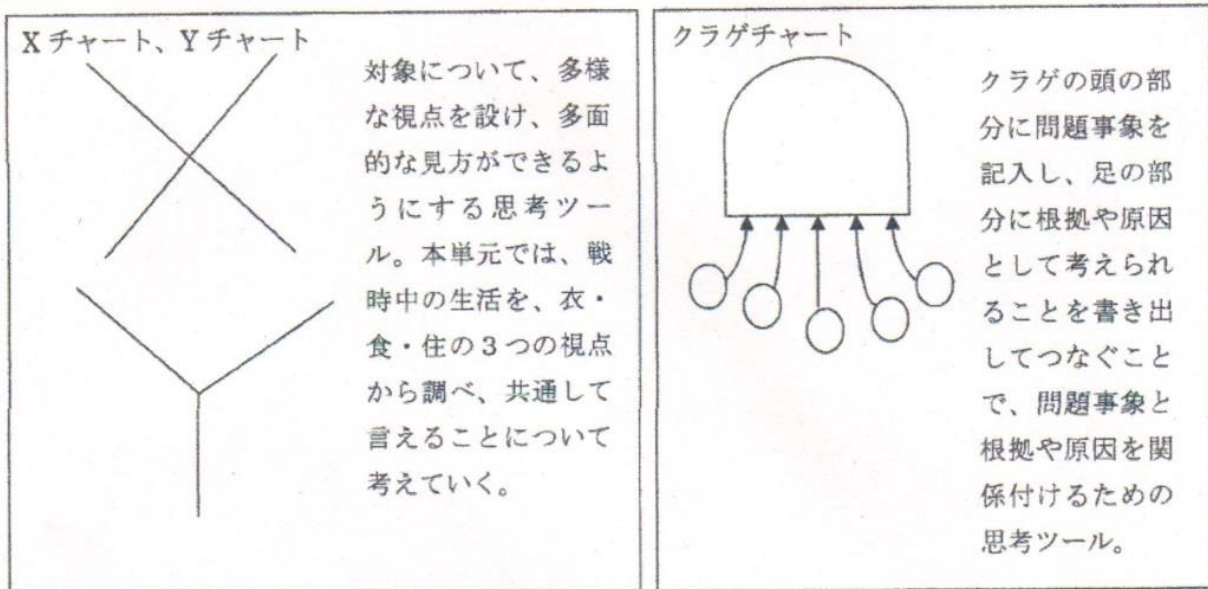 Xチャート、Yチャート
対象について、多様
な視点を設け、多面
的な見方ができるよ
うにする思考ツー
ル。本単元では、戦
時中の生活を、衣・
食・住の3つの視点
から調べ、共通して
言えることについて
考えていく。
クラゲチャート
クラゲの頭の部
分に問題事象を
記入し、足の部
分に根拠や原因
として考えられ
ることを書き出
してつなぐこと
で、問題事象と
根拠や原因を関
係付けるための
思考ツール。